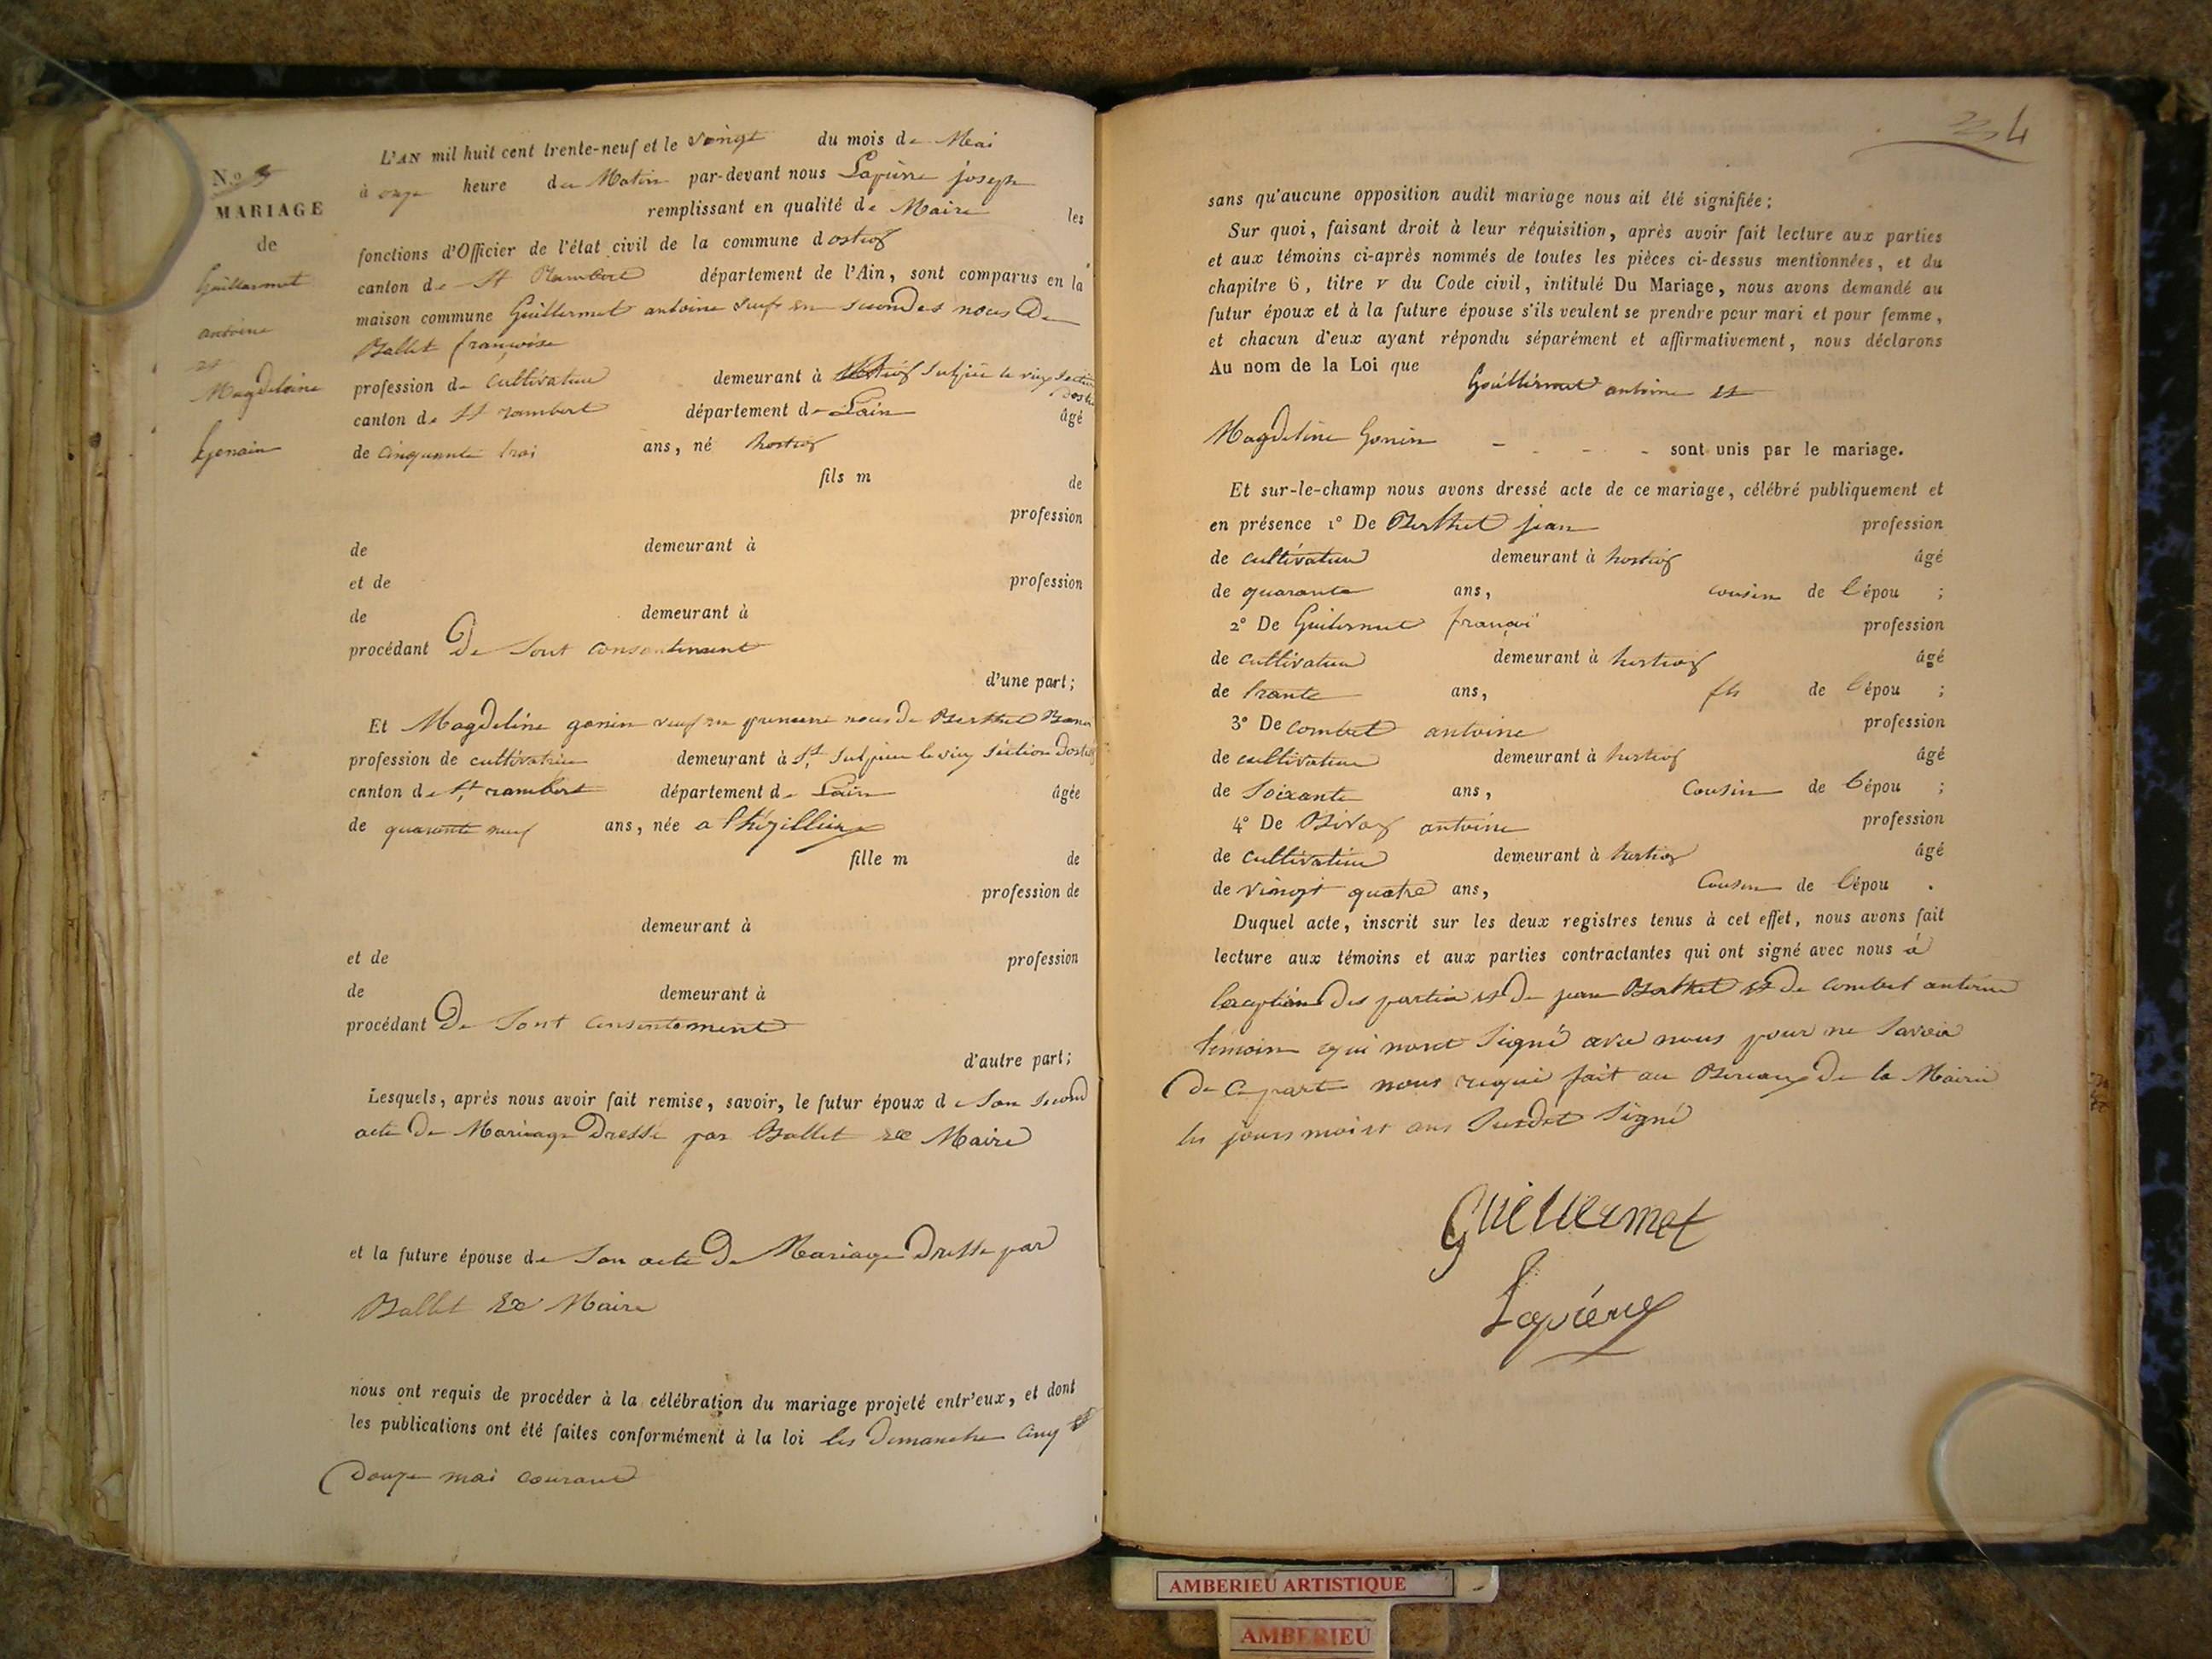 N.o
MARIAGE
de
Guillermet
antoine
et
Magdeleine
Genain
L'AN mil huit cent trente-neuf et le vingt du mois de Mai
à onze heure du Matin par-devant nous Lapierre joseph
remplissant en qualité de Maire les
fonctions d'Officier de l'état civil de la commune d'ostiaz
canton de St Rambert département de l'Ain, sont comparus en la
maison commune Guillermet antoine en secondes noces De
Ballet françoise
profession de cultivateur demeurant à
canton de St rambert département de Lain âgé
de cinquante trois ans, né hostiaz
fils m de
profession
de demeurant à
et de profession
de demeurant à
procédant De Sont consentement
d'une part;
Et Magdeline gonin en premiere noces de Berthet
profession de cultivatrice demeurant à St Sulpice le vieux Séction Dostiaz
canton de St rambert département de Lain âgée
de quarante neuf ans, née a
fille m de
profession de
demeurant à
et de profession
de demeurant à
procédant De Sont consentement
d'autre part;
Lesquels, après nous avoir fait remise, savoir, le futur époux de Son second
acte De Mariage Dressé par Ballet ex Maire
et la future épouse de Son acte De Mariage Dressé par
Ballet Ex Maire
nous ont requis de procéder à la célébration du mariage projeté entr'eux, et dont
les publications ont été faites conformément à la loi les Dimanche cinq et
Douze mai courant
4
sans qu'aucune opposition audit mariage nous ait été signifiée;
Sur quoi, faisant droit à leur réquisition, après avoir fait lecture aux parties
et aux témoins ci-après nommés de toutes les pièces ci-dessus mentionnées, et du
chapitre 6, titre v du Code civil, intitulé Du Mariage, nous avons demandé au
futur époux et à la future épouse s'ils veulent se prendre pour mari et pour femme,
et chacun d'eux ayant répondu séparément et affirmativement, nous déclarons
Au nom de la Loi que
Guillermet antoine et
Magdeline Gonin - - - - sont unis par le mariage.
Et sur-le-champ nous avons dressé acte de ce mariage, célébré publiquement et
en présence 1° De Berthet jean profession
de cultivateur demeurant à hostiaz âgé
de quarante ans, cousin de l'épou ;
2° De Guilermet françoi profession
de cultivateur demeurant à hostiaz âgé
de trante ans, fils de l'épou ;
3° De combet antoine profession
de cultivateur demeurant à hostiaz âgé
de Soixante ans, Cousin de l'épou ;
4° De antoine profession
de cultivateur demeurant à hostiaz âgé
de vingt quatre ans, Cousin de l'épou .
Duquel acte, inscrit sur les deux registres tenus à cet effet, nous avons fait
lecture aux témoins et aux parties contractantes qui ont signé avec nous à
des parties et De jean Berthet et De combet antoine
temoin qui nont Signé avec nous pour ne Savoir
De ce part nous requi fait au Bureaux De la Mairie
les jours mois et ans Susdit Signé
Guillermet
Lapierre
AMBERIEU ARTISTIQUE
AMBERIEU